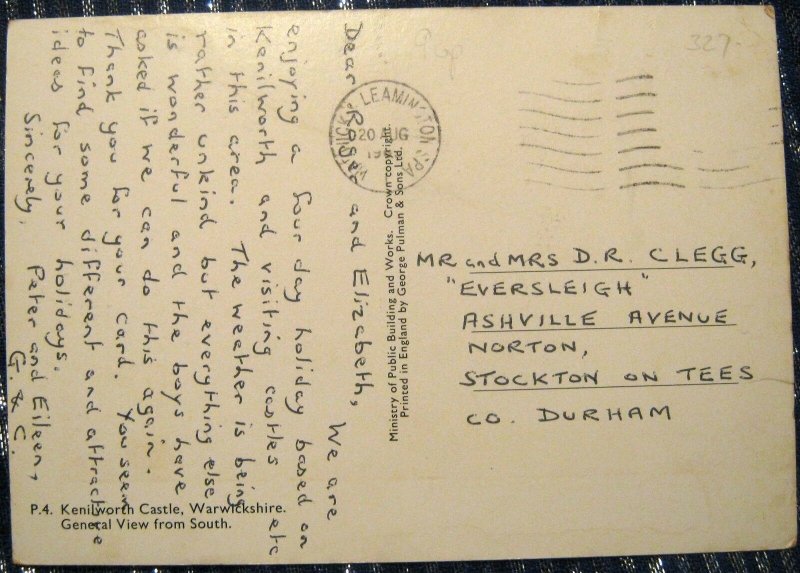 327.
LEAMINGTON SPA
WARWICK
20 AUG
Dear Roger and Elizabeth,
We are
enjoying a four day holiday based on
Kenilworth and visiting castles etc
in this area. The weather is being
rather unkind but everything else
is wonderful and the boys have
asked if we can do this again.
Thank you for your card. You seem
to find some different and attractive
ideas for your holidays.
Sincerely,
Peter and Eileen,
G. & C.
Ministry of Public Building and Works. Crown copyright.
Printed in England by George Pulman & Sons Ltd.
MR and MRS D.R. CLEGG,
"EVERSLEIGH"
ASHVILLE AVENUE
NORTON,
STOCKTON ON TEES
CO. DURHAM
P.4. Kenilworth Castle, Warwickshire.
General View from South.